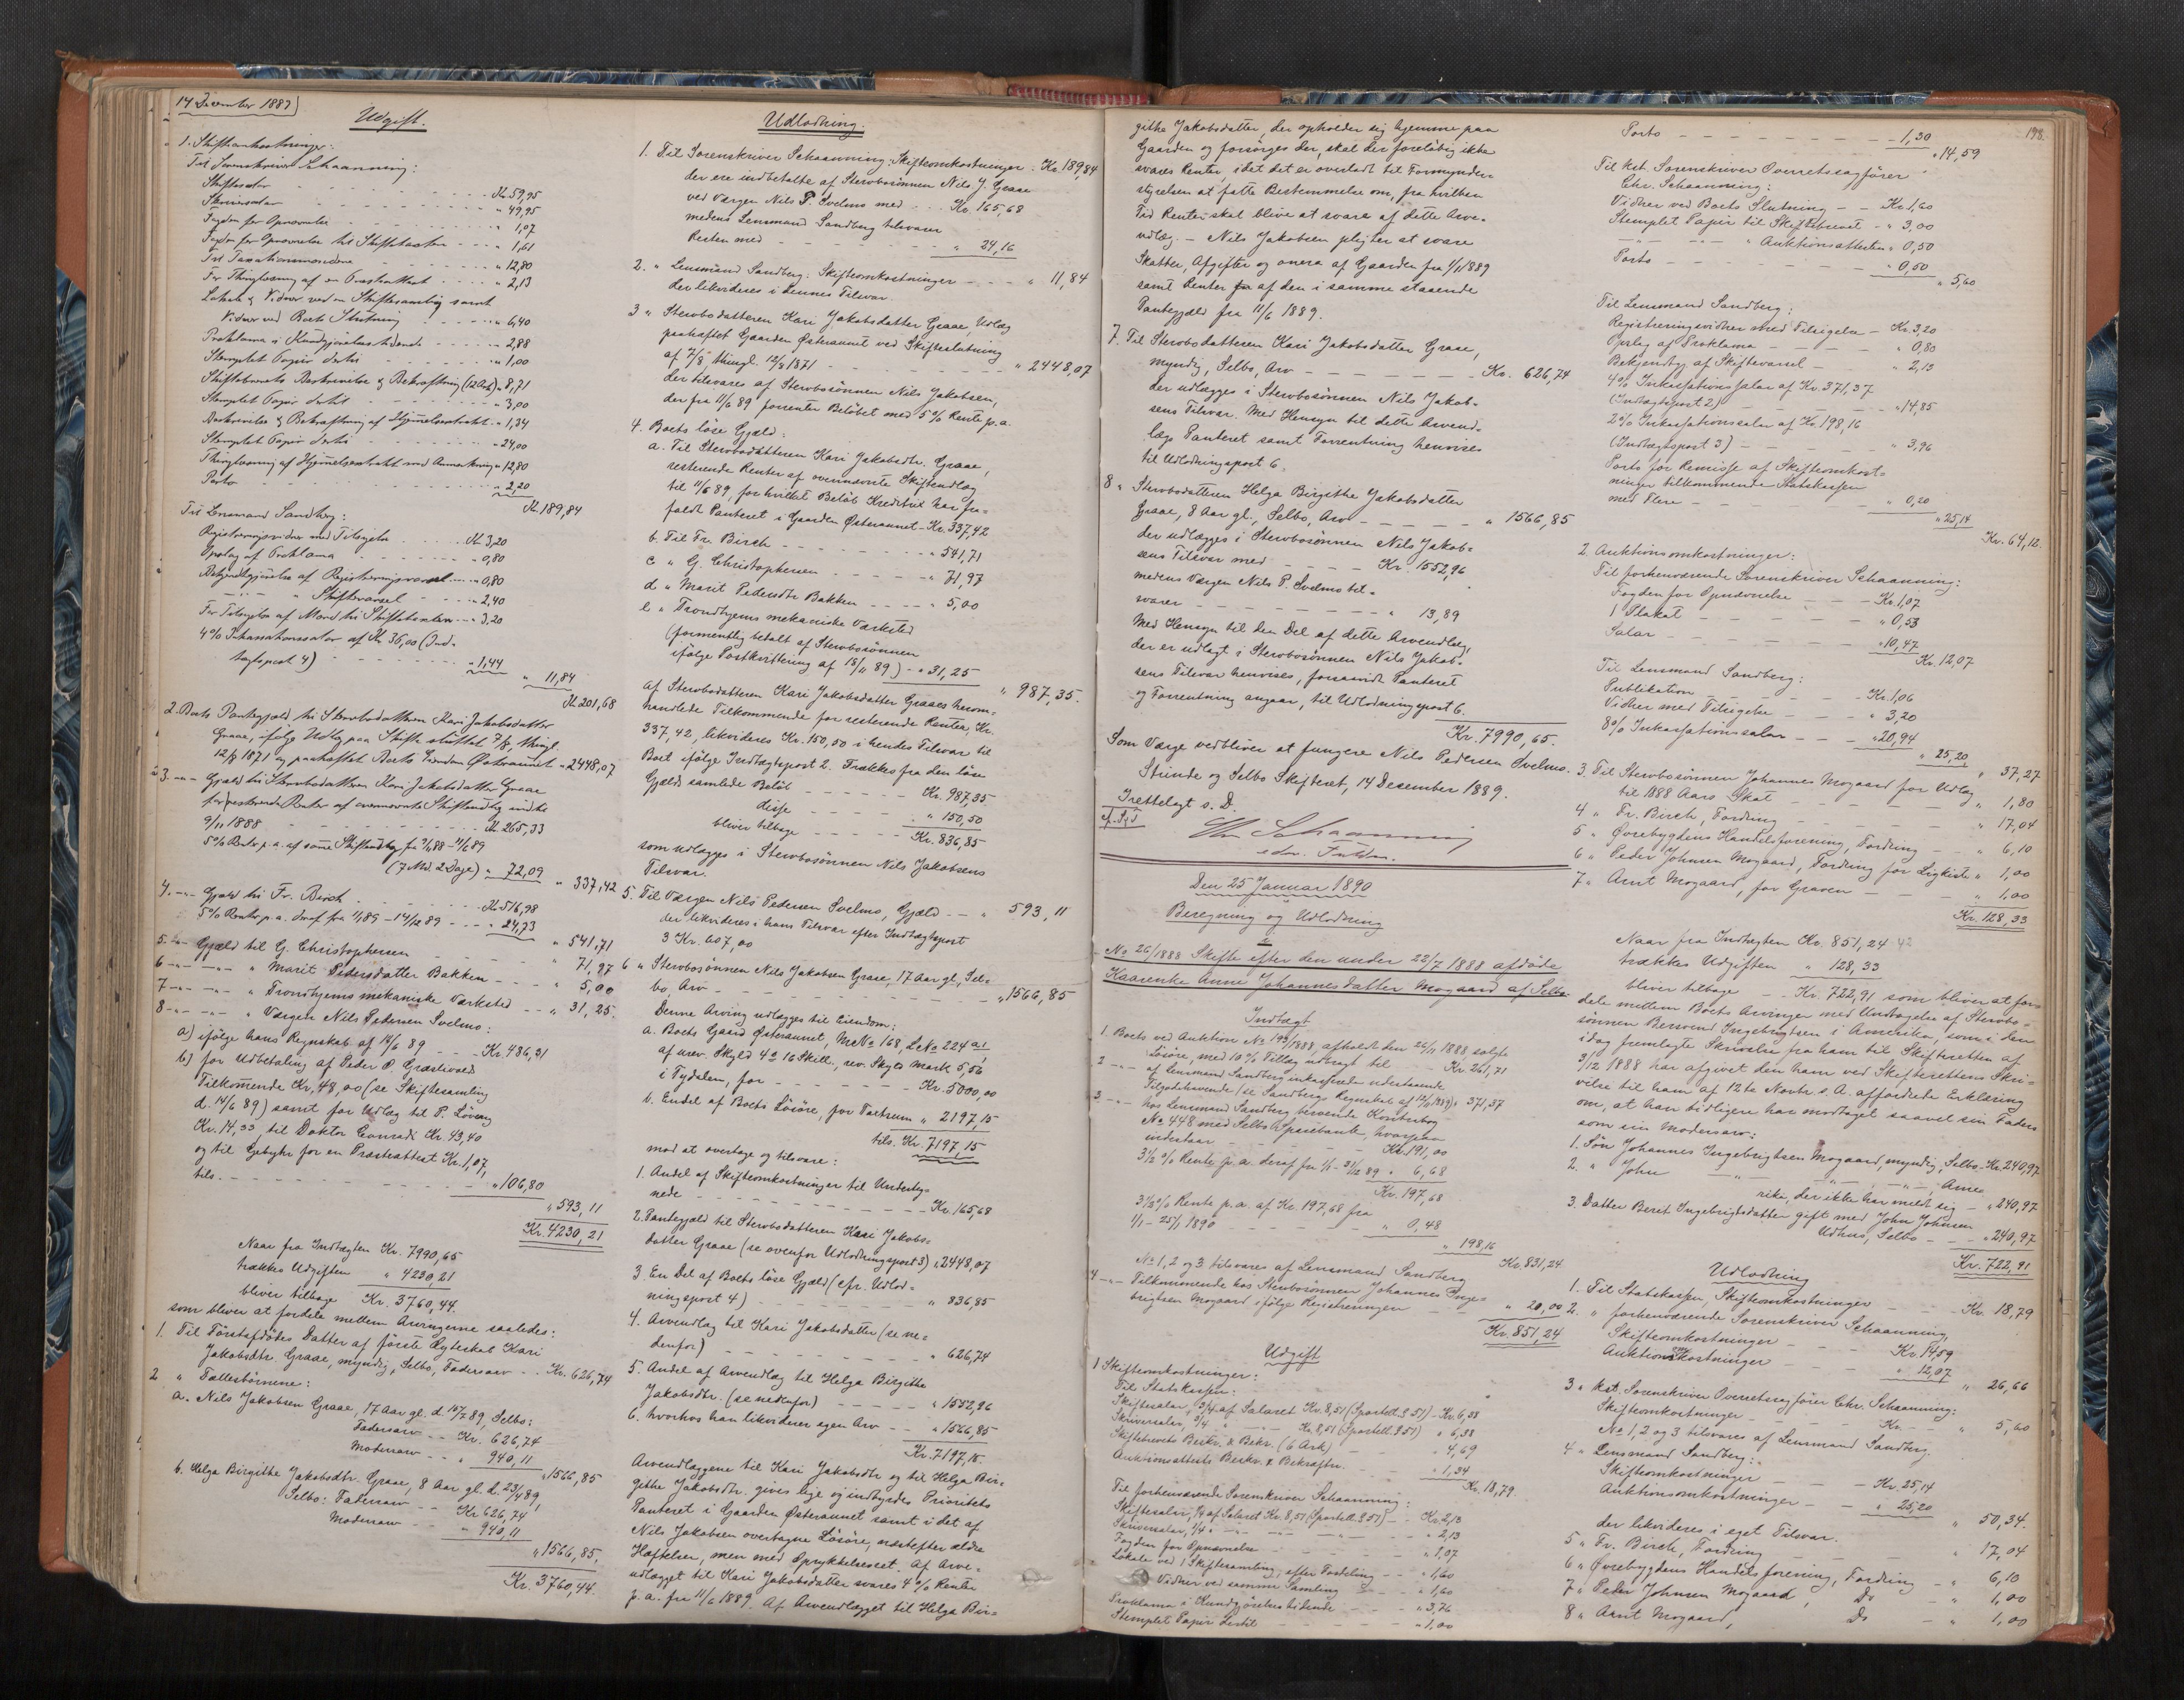 14 December 1889)
Udgift.
1. Skifteomkostninger:
Til Sorenskriver Schaanning:
Skiftesalar - - - Kr. 59,95
Skriversalar - - - " 49,95
Fogden for Opnævnelse - - - " 1,07
Fogden for Opnævnelse til Skiftetaxten - - - " 1,61
Til Taxationsmændene - - - " 12,80
For Thinglæsning af en Præstattest - - - " 2,13
Lokale & Vidner ved en Skiftesamling samt
Vidner ved Boets Slutning - - - " 6,40
Proklama i Kundgjørelsestidende - - - " 2,88
Stemplet Papir dertil - - - " 1,00
Skiftebrevets Beskrivelse & Bekræftning (12 Ark) " 8,71
Stemplet Papir dertil - - - " 3,00
Beskrivelse & Bekræftning af Hjemmelsextrakt " 1,34
Stemplet Papir dertil - - - " 24,00
Thinglæsning af Hjemmelsextrakt med Anmærkning " 12,80
Porto - - - " 2,20
Kr. 189,84
Til Lensmand Sandberg:
Registreringsvidner med Tilsigelse - - - Kr. 3,20
Opslag af Proklama - - - " 0,80
Bekjendtgjørelse af Registreringsvarsel - - - " 0,80
-"- " Skiftevarsel - - - " 2,40
For Tilsigelse af Mænd til Skiftetaxten - - - " 3,20
4% Inkassationssalar af Kr. 36,00 (Ind-
tægtspost 4) - - - " 1,44
" 11,84
Kr. 201,68
2. Boets Pantegjæld til Stervbodatteren Kari Jakobsdatter
Graae, ifølge Udlæg paa Skifte sluttet 7/8, thingl.
12/8 1871 og paaheftet Boets Gaarden Østeraunet " 2448,07
3 -"- Gjæld til Stervbodatteren Kari Jakobsdatter Graae
for resterende Renter af ovennævnte Skifteudlæg indtil
9/11 1888 - - - Kr. 265,33
5% Rente p. a. af samme Skifteudlæg fra 9/11 88 - 11/6 89
(7 Md. 2 Dage) " 72,09
" 337,42
4. -"- Gjæld til Fr. Birch - - - Kr. 516,98
5% Rente p. a. deraf fra 1/1 89 - 14/12 89 - - - " 24,73
" 541,71
5. -"- Gjæld til G. Christophersen - - - " 71,97
6 -"- -"- " Marit Pedersdatter Bakken - - - " 5,00
7 -"- -"- " Trondhjems mekaniske Værksted - - - " 31,25.
8 -"- -"- " Værgen Nils Pedersen Svelmo:
a) ifølge hans Regnskab af 14/6 89 - - - Kr. 486,31
b) for Udbetaling af Peder O. Græslivoeds
Tilkommende Kr. 48,00 (se Skiftesamling
d. 14/6 89) samt for Udlæg til P. Løvaug
Kr. 14,33, til Doktor Conradi Kr. 43,40
og til Gebyhr for en Præsteattest Kr. 1,07,
tils. - - - " 106,80
" 593,11
Kr. 4230,21
Naar fra Indtægten Kr. 7990,65
trækkes Udgiften " 4230,21
bliver tilbage Kr. 3760,44.
som bliver at fordele mellem Arvingerne saaledes:
1. Til Førstafdødes Datter af første Ægteskab Kari
Jakobsdtr. Graae, myndig, Selbo, Fadersarv - - Kr. 626,74
2 " Fællesbørnene:
a. Nils Jakobsen Graae, 17 Aar gl. d. 10/7 89, Selbo:
Fadersarv - - Kr. 626,74
Modersarv - - " 940,11
" 1566,85
b. Helga Birgithe Jakobsdtr. Graae, 8 Aar gl. d. 23/4 89,
Selbo: Fadersarv - - Kr 626,74
Modersarv - - " 940,11
" 1566,85.
Kr. 3760,44.
Udlodning.
1. Til Sorenskriver Schaanning: Skifteomkostninger - Kr. 189,84
der ere indbetalte af Stervbosønnen Nils J. Graae
ved Værgen Nils P. Svelmo med - - Kr. 165,68
medens Lensmand Sandberg tilsvarer
Resten med - - - " 24,16
2. " Lensmand Sandberg: Skifteomkostninger - - - " 11,84
der likvideres i dennes Tilsvar.
3 " Stervbodatteren Kari Jakobsdatter Graae, Udlæg
paaheftet Gaarden Østeraunet ved Skifteslutning
af 7/8, thingl. 12/8 1871 - - - " 2448,07
der tilsvares af Stervbosønnen Nils Jakobsen,
der fra 11/6 89 forrenter Beløbet med 5% Rente p. a.
4. Boets løse Gjæld:
a. Til Stervbodatteren Kari Jakobsdtr. Graae,
resterende Renter af ovennævnte Skifteudlæg
til 11/6 89, for hvilket Beløb Kreditrix har fra-
faldt Panteret i Gaarden Østeraunet - Kr. 337,42
b. Til Fr. Birch - - - " 541,71
c " G. Christophersen - - - " 71,97
d " Marit Pedersdtr Bakken - - - " 5,00
e " Trondhjems mekaniske Værksted
(formentlig betalt af Stervbosønnen
ifølge Postkvittering af 18/11 89) - " 31,25
" 987,35.
Af Stervbodatteren Kari Jakobsdatter Graaes herom-
handlede Tilkommende for resterende Renter, Kr.
337,42, likvideres Kr. 150,50 i hendes Tilsvar til
Boet ifølge Indtægtspost 2. Trækkes fra den løse
Gjælds samlede Beløb - - - Kr. 987,35
disse - - - " 150,50
bliver tilbage - - - Kr. 836,85
som udlægges i Stervbosønnen Nils Jakobsens
Tilsvar.
5. Til Værgen Nils Pedersen Svelmo, Gjæld - - " 593,11
der likvideres i hans Tilsvar efter Indtægtspost
3 Kr. 607,00
6 " Stervbosønnen Nils Jakobsen Graae, 17 Aar gl., Sel-
bo, Arv - - - " 1566,85
Denne Arving udlægges til Eiendom:
a. Boets Gaard Østeraunet, Mc No 168, L No 224 a1
af urev. Skyld 4 ort 16 Skill., rev. Skyld mark 5,56
i Tydalen, for - - - Kr. 5000,00
b. Endel af Boets Løsøre, for Taxtsum " 2197,15
tils. Kr. 7197,15
mod at overtage og tilsvare:
1. Andel af Skifteomkostninger til Underteg-
nede - - - Kr. 165,68
2. Pantegjæld til Stervbodatteren Kari Jakobs-
datter Graae (se ovenfor Udlodningspost 3) " 2448,07
3. En Del af Boets løse Gjæld (cfr. Udlod-
ningspost 4) - - - " 836,85
4. Arveudlæg til Kari Jakobsdatter (se ne-
denfor) - - - " 626,74
5. Andel af Arveudlæg til Helga Birgithe
Jakobsdtr. (se nedenfor) - - - " 1552,96
6. hvorhos han likviderer egen Arv - - " 1566,85
Kr. 7197,15.
Arveudlæggene til Kari Jakobsdtr og til Helga Bir-
githe Jakobsdtr. gives lige og indbyrdes Prioritets
Panteret i Gaarden Østeraunet samt i det af
Nils Jakobsen overtagne Løsøre, næstefter ældre
Hæftelser, men med Oprykkelsesret. Af Arve-
udlægget til Kari Jakobsdatter svares 4% Renter
p. a. fra 11/6 1889. Af Arveudlægget til Helga Bir-
githe Jakobsdatter, der opholder sig hjemme paa
Gaarden og forsørges der, skal der foreløbig ikke
svares Renter, idet det er overladt til Formynder-
styrelsen at fatte Bestemmelse om, fra hvilken
Tid Renter skal blive at svare af dette Arve-
udlæg. - Nils Jakobsen pligter at svare
Skatter, Afgifter og onera af Gaarden fra 1/11 1889
samt Renter af den i samme staaende
Pantegjæld fra 11/6 1889.
7. Til Stervbodatteren Kari Jakobsdatter Graae,
myndig, Selbo, Arv - - - Kr. 626,74
der udlægges i Stervbosønnen Nils Jakob-
sens Tilsvar. Med Hensyn til dette Arveud-
lægs Panteret samt Forrentning henvises
til Udlodningspost 6.
8 " Stervbodatteren Helga Birgithe Jakobsdatter
Graae, 8 Aar gl., Selbo, Arv - - - " 1566,85
der udlægges i Stervbosønnen Nils Jakob-
sens Tilsvar med - - - Kr. 1552,96
medens Værgen Nils P. Svelmo til-
svarer - - - " 13,89
Med Hensyn til den Del af dette Arveudlæg,
der er udlagt i Stervbosønnen Nils Jakob-
sens Tilsvar henvises, forsaavidt Panteret
og Forrentning angaar, til Udlodningspost 6.
Kr. 7990,65.
Som Værge vedbliver at fungere Nils Pedersen Svelmo.
Strinde og Selbo Skifteret, 14 December 1889.
Irettelagt s. D.
Chr Schaanning
edsv. Fuldm.
Den 25 Januar 1890
Beregning og Udlodning
i
No 26/1888 Skifte efter den under 22/7 1888 afdøde
Kaarenke Anne Johannesdatter Mogaard af Selbo
Indtægt
1. Boets ved Auktion No 193/1888, afholdt den 26/11 1888, solgte
Løsøre, med 10% Tillæg udbragt til - Kr. 261,71
2 -"- af Lensmand Sandberg inkasserede udestaaende
Tilgodehavende (se Sandbergs Regnskab af 12/6 1889) " 371,37
3 -"- hos Lensmand Sandberg beroende Kontrabog
No 448 med Selbo Sparebank, hvorpaa
indestaar - - - Kr. 191,00
3 1/2 % Rente p. a. deraf fra 1/1 - 31/12 89 " 6,68
Kr. 197,68
3 1/2 % Rente p. a. af Kr. 197,68 fra
1/1 - 25/1 1890 - - - " 0,48
" 198,16
No 1, 2 og 3 tilsvares af Lensmand Sandberg
Kr. 831,24
4 -"- Tilkommende hos Stervbosønnen Johannes Inge-
brigtsen Mogaard, ifølge Registreringen - - " 20,00
Kr. 851,24
Udgift
1 Skifteomkostninger:
Til Statskassen:
Skiftesalar, 3/4 af Salaret Kr. 8,51 (Sportell. § 51) - Kr. 6,38
Skriversalar, 3/4 " -"- Kr. 8,51 (Sportell. § 51) " 6,38
Skiftebrevets Beskr. & Bekr. (6 Ark) - " 4,69
Auktionsattests Beskr. & Bekræftn. - - " 1,34
Kr. 18,79.
Til forhenværende Sorenskriver Schaanning:
Skiftesalar, 1/4 af Salaret Kr. 8,51 (Sportell. § 51) - Kr. 2,13
Skriversalar, 1/4 " -"- -"- - " 2,13
Fogden for Opnævnelse - - - " 1,07
Lokale ved 1 Skiftesamling, efter Fordeling - - " 1,60
2 Vidner ved samme Samling - - " 1,60
Proklama i Kundgjørelsestidende - - " 3,76
Stemplet Papir dertil - - - " 1,00
198.
Porto - - - 1,30
" 14,59
Til kst. Sorenskriver Overretssagfører
Chr. Schaanning:
Vidner ved Boets Slutning - - Kr. 1,60
Stemplet Papir til Skiftebrevet - " 3,00
-"- -"- " Auktionsattesten " 0,50
Porto - - - " 0,50
" 5,60
Til Lensmand Sandberg:
Registreringsvidner med Tilsigelse - Kr. 3,20
Opslag af Proklama - - - " 0,80
Bekjendtg. af Skiftevarsel - " 2,13
4% Inkassationssalar af Kr. 371,37
(Indtægtspost 2) - - - " 14,85
2% Inkassationssalar af Kr. 198,16
(Indtægtspost 3) - - - " 3,96
Porto for Remisse af Skifteomkost-
ninger tilkommende Statskassen
med Flere - - - " 0,20
" 25,14
Kr. 64,12.
2. Auktionsomkostninger:
Til forhenværende Sorenskriver Schaanning:
Fogden for Opnævnelse - - - Kr. 1,07
1 Plakat - - - " 0,53
Salar - - - " 10,47
Kr. 12,07
Til Lensmand Sandberg:
Publikation - - - Kr. 1,06
Vidner med Tilsigelse - - - " 3,20
8% Inkassationssalar - - - " 20,94
" 25,20
" 37,27
3. Til Stervbosønnen Johannes Mogaard for Udlæg
til 1888 Aars Skat - - - " 1,80
4 " Fr. Birch, Fordring - - - " 17,04
5 " Øvrebygdens Handelsforening, Fordring - - " 6,10
6 " Peder Johnsen Mogaard, Fordring for Ligkiste " 1,00
7 " Arnt Mogaard, for Graven - - " 1,00
Kr. 128,33
Naar fra Indtægten Kr. 851,24
trækkes Udgiften " 128,33
bliver tilbage - - Kr. 722,91 som bliver at for-
dele mellem Boets Arvinger med Undtagelse af Stervbo-
sønnen Bersvend Ingebrigtsen i Amerika, som i den
idag fremlagte Skrivelse fra ham til Skifteretten af
3/12 1888 har afgivet den ham ved Skifterettens Skri-
velse til ham af 12te Novbr s. A. affordrede Erklæring
om, at han tidligere har modtaget saavel sin Faders
som sin Modersarv:
1. Søn Johannes Ingebrigtsen Mogaard, myndig, Selbo - Kr. 240,97
2. " John -"- -"- -"-, Ame-
rika, der ikke har meldt sig - " 240,97
3. Datter Berit Ingebrigtsdatter gift med John Johnsen
Udhus, Selbo - - - " 240,97
Kr. 722,91
Udlodning
1. Til Statskassen, Skifteomkostninger - - Kr. 18,79
2. " forhenværende Sorenskriver Schaanning,
Skifteomkostninger - - - Kr. 14,59
Auktionsomkostninger - - - " 12,07
" 26,66
3 " kst. Sorenskriver Overretssagfører Chr. Schaanning:
Skifteomkostninger - - - Kr. - " 5,60
No 1, 2 og 3 tilsvares af Lensmand Sandberg.
4 " Lensmand Sandberg:
Skifteomkostninger - - - Kr. 25,14
Auktionsomkostninger - - " 25,20
" 50,34.
der likvideres i eget Tilsvar.
5 " Fr. Birch, Fordring - - " 17,04
6 " Øvrebygdens Handelsforening, Fordring - " 6,10
7 " Peder Johnsen Mogaard, Do - " 1,00
8 " Arnt Mogaard, Do - " 1,00